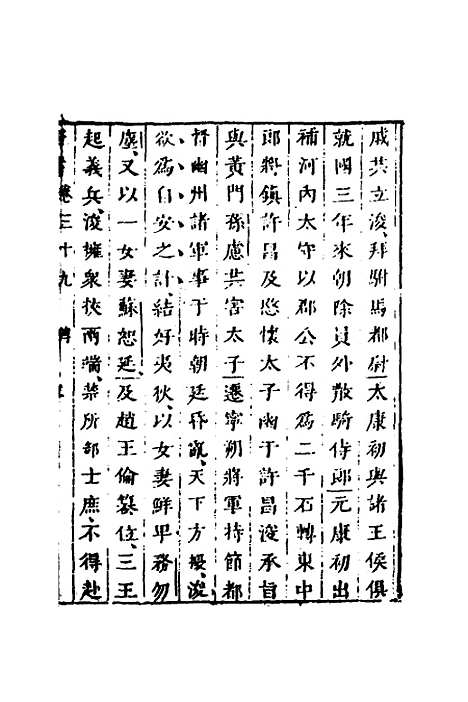 戚共立浚、拜駙馬都尉太康初與諸王侯俱
就國三年來朝除員外散騎侍郎元康初出
補河內太守以郡公不得爲二千石轉東中
郎將鎮許昌及愍懷太子幽于許昌浚承旨
與黃門孫慮共害太子遷寧朔將軍持節都
督幽州諸軍事于時朝廷昏亂、天下方擾、浚
欲爲自安之計、結好夷狄、以女妻鮮卑務勿
塵、又以一女妻蘇恕延、及趙王倫簒位、三王
起義兵、浚擁衆挾兩端、禁所部士庶、不得赴
晉書卷三十九